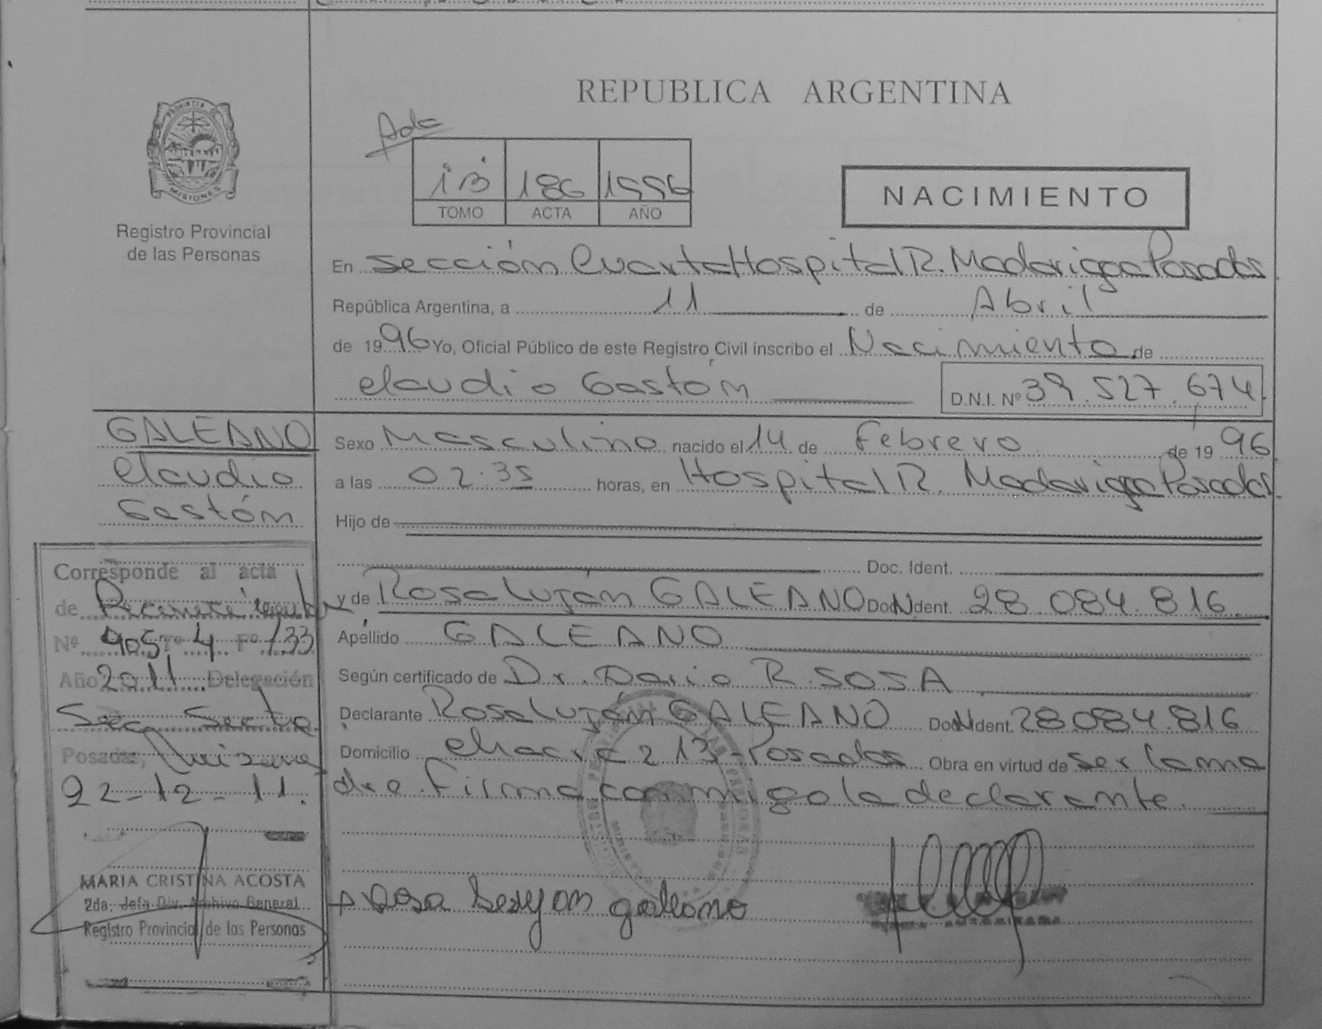 REPUBLICA ARGENTINA
PROVINCIA DE
MISIONES
Registro Provincial
de las Personas
Ada
1B 186 1996
TOMO ACTA AÑO
NACIMIENTO
En sección Cuarta Hospital R. Madariaga Posadas
República Argentina, a 11 de Abril
de 1996 Yo, Oficial Público de este Registro Civil inscribo el Nacimiento de
Claudio Gastón D.N.I. Nº 39.527.674
GALEANO
Claudio
Gastón
Sexo Masculino nacido el 14 de Febrero de 1996
a las 02.35 horas, en Hospital R. Madariaga Posadas
Hijo de
Doc. Ident.
y de Rosa Luján GALEANO Do N Ident. 28.084.816
Apellido GALEANO
Según certificado de Dr. Dario R. SOSA
Declarante Rosa Luján GALEANO Do N Ident. 28.084.816
Domicilio Chacra 213 - Posadas Obra en virtud de ser la ma
dre firma conmigo la declarante.
Corresponde al acta
de
Nº 405 Tº 4 Fº 133
Año 2011 Delegación
Secc. Sexta
Posadas, Misiones
22-12-11.
MARIA CRISTINA ACOSTA
2da. Jefa Div. Archivo General
Registro Provincial de las Personas
Rosa Lujan galeano